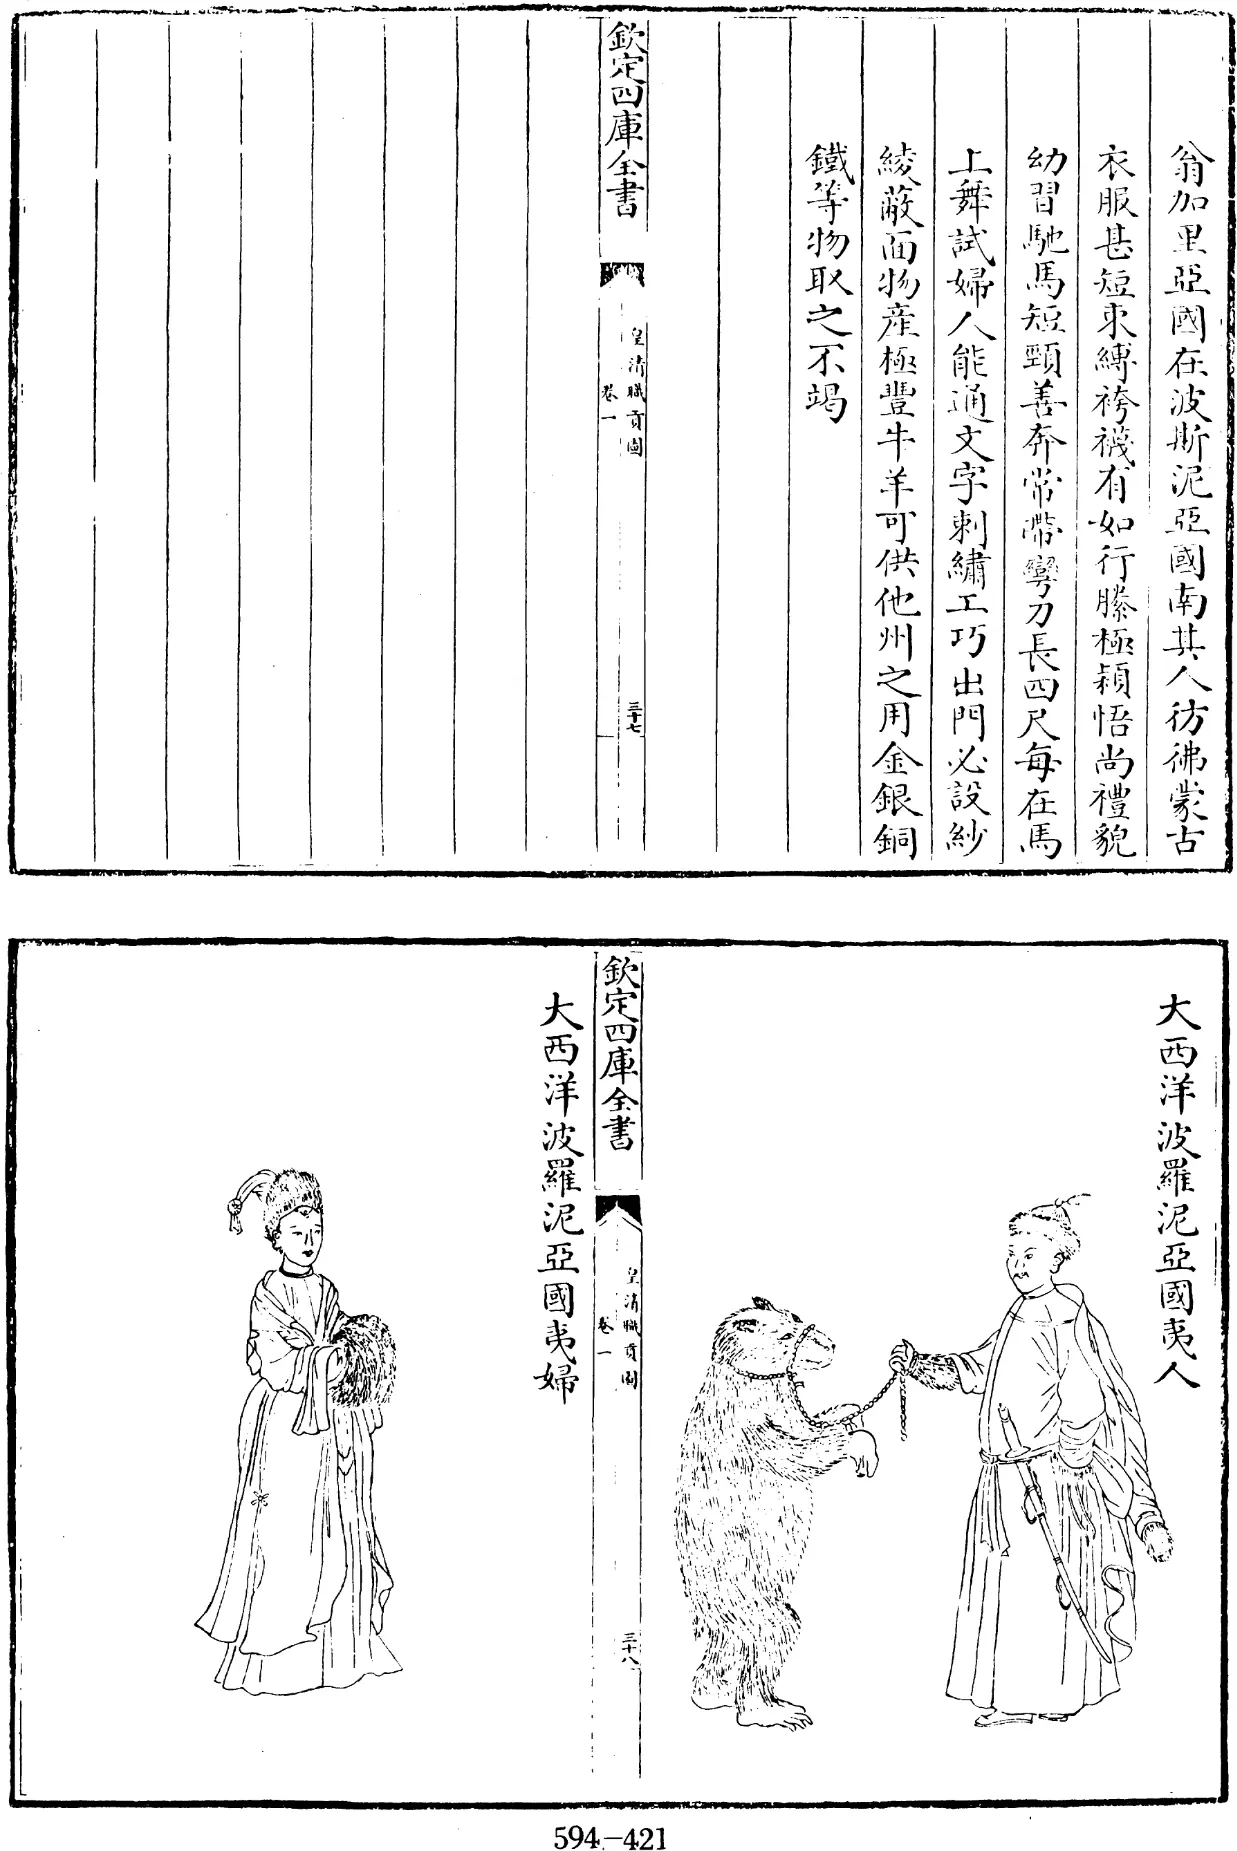 翁加里亞國在波斯泥亞國南其人彷彿蒙古
衣服甚短束縛袴襪有如行縢極穎悟尚禮貌
幼習馳馬短頸善奔常帶彎刀長四尺每在馬
上舞試婦人能通文字刺繡工巧出門必設紗
綾蔽面物産極豐牛羊可供他州之用金銀銅
鐵等物取之不竭
欽定四庫全書
皇清職貢圖
卷一
三十七
大西洋波羅泥亞國夷人
欽定四庫全書
皇清職貢圖
卷一
三十八
大西洋波羅泥亞國夷婦
594-421